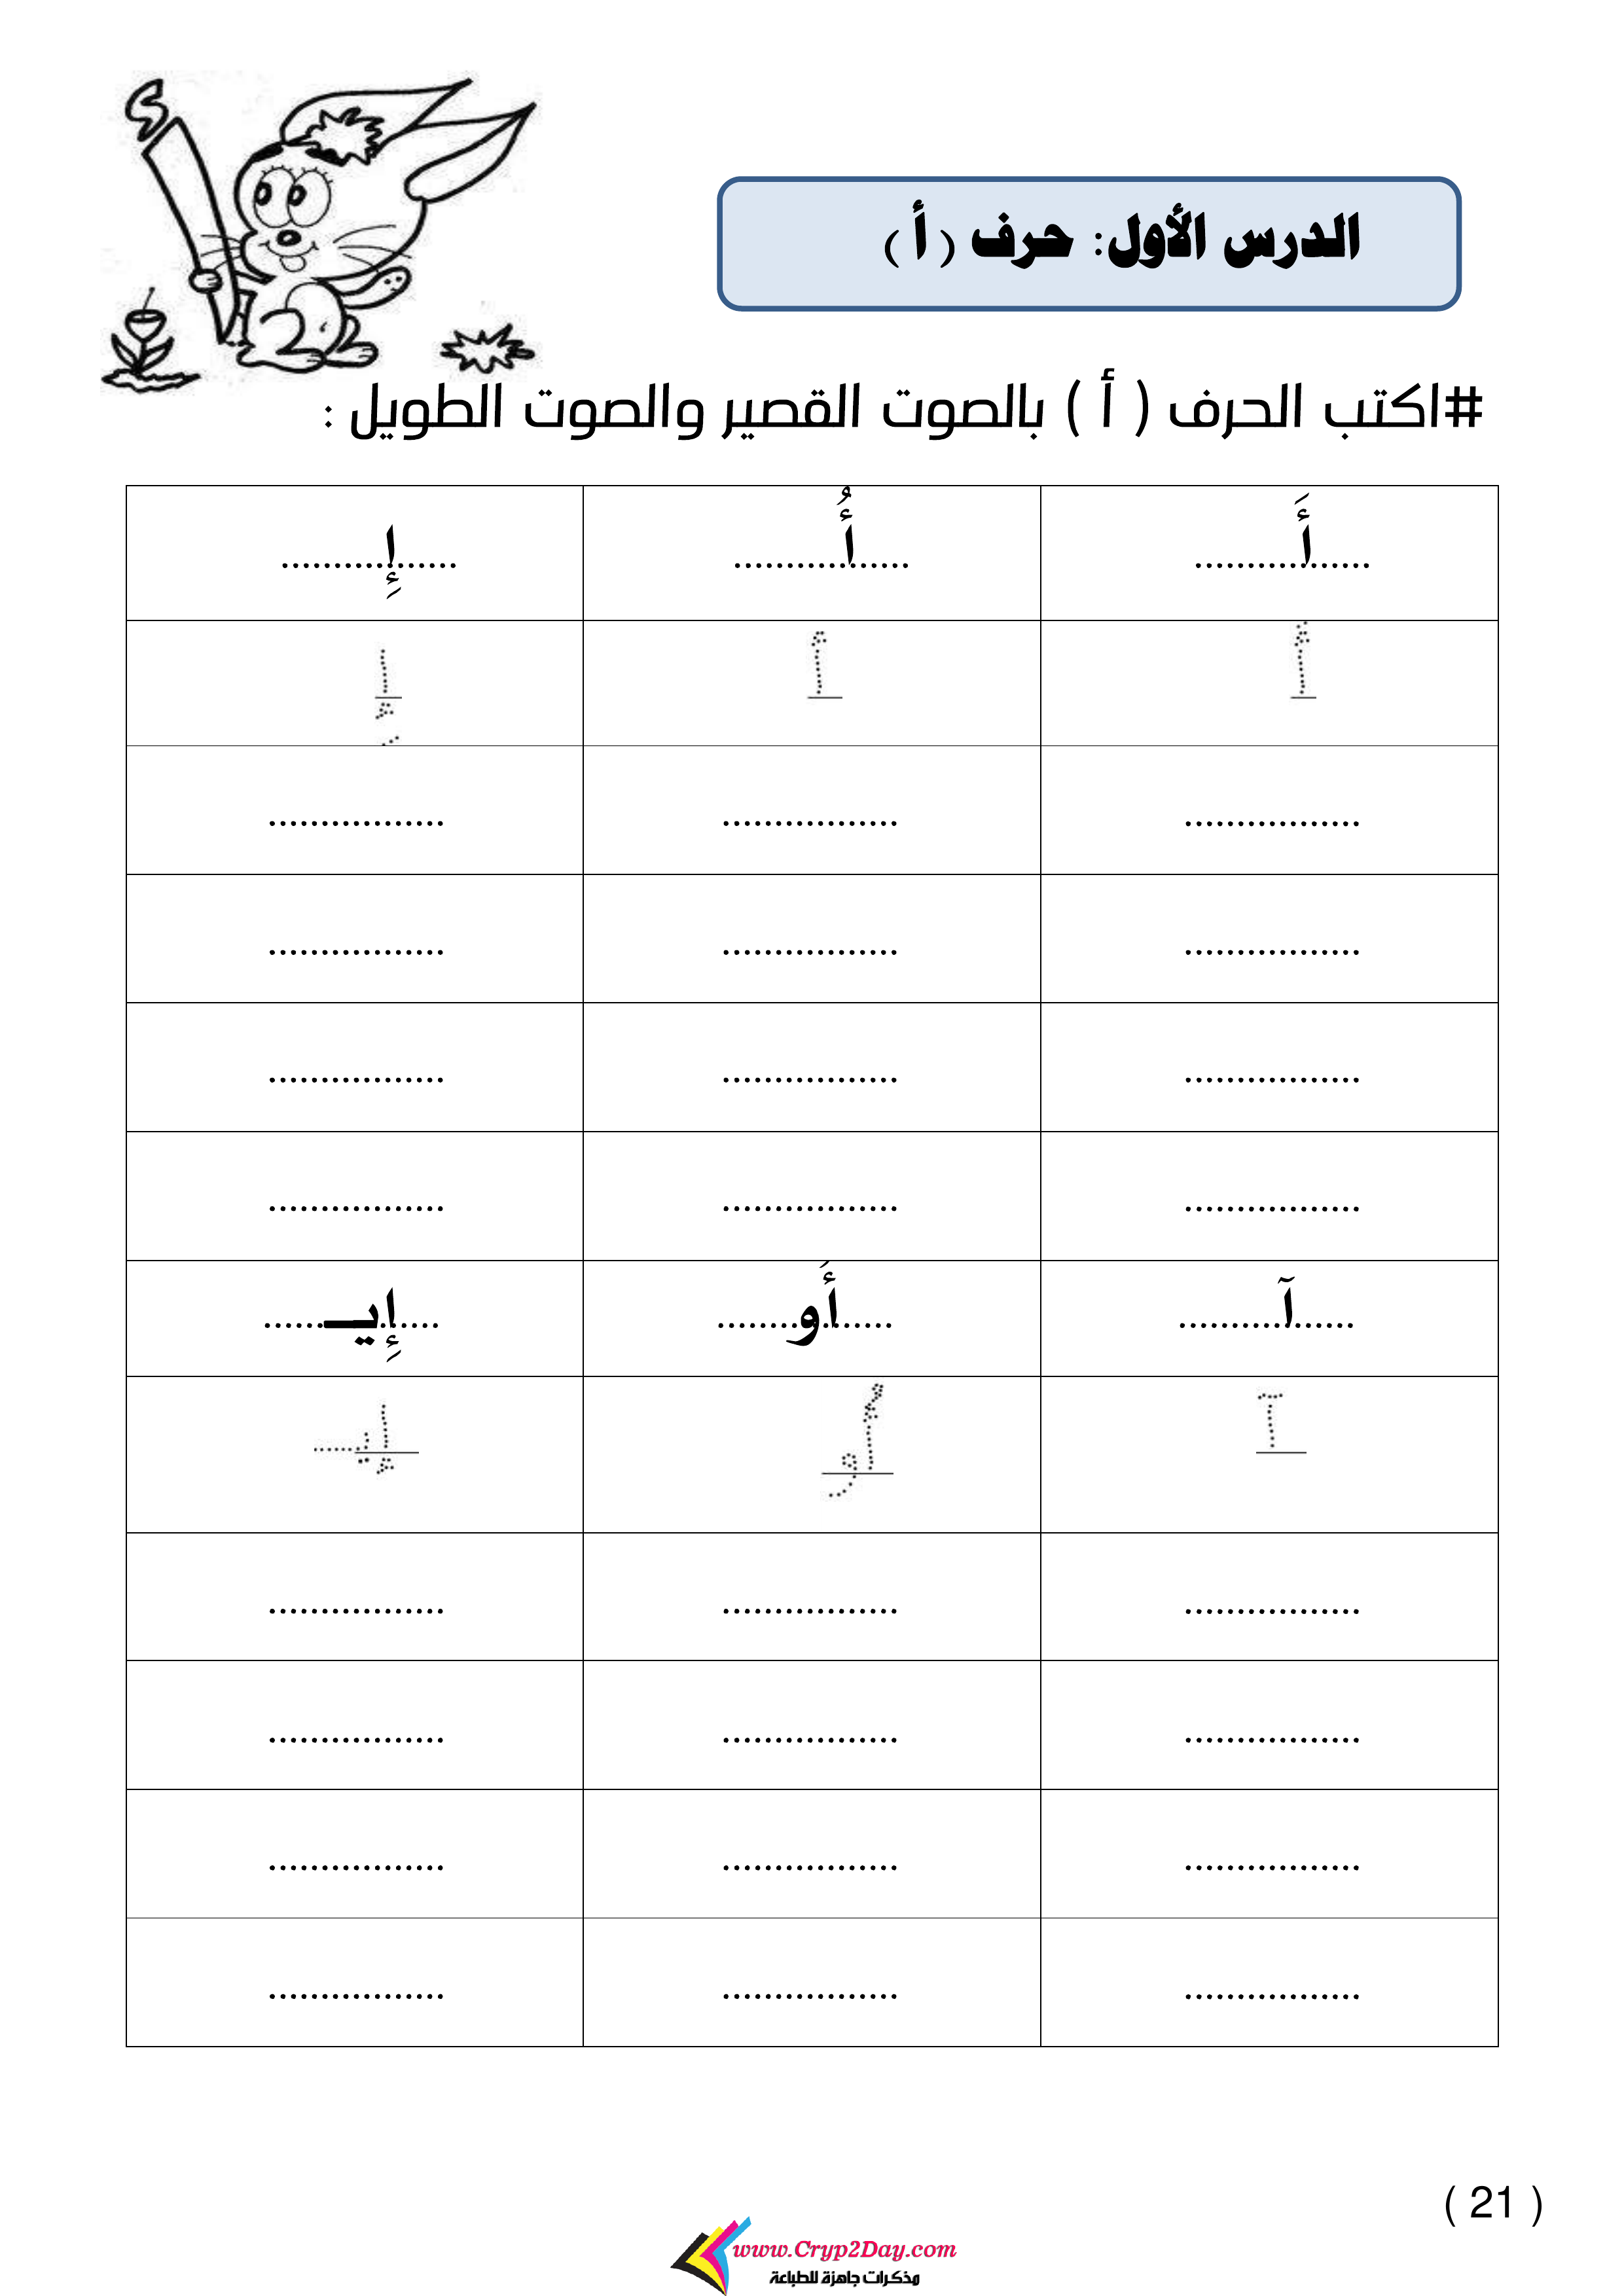 الدرس الأول: حرف ( أ )
#اكتب الحرف ( أ ) بالصوت القصير والصوت الطويل :
أَ................. أُ................. إِ.................
أَ أُ إِ
................. ................. .................
................. ................. .................
................. ................. .................
................. ................. .................
آ................. أُو................. إِيـ.................
آ أُو إيـ
................. ................. .................
................. ................. .................
................. ................. .................
................. ................. .................
( 21 )
www.Cryp2Day.com
مذكرات جاهزة للطباعة